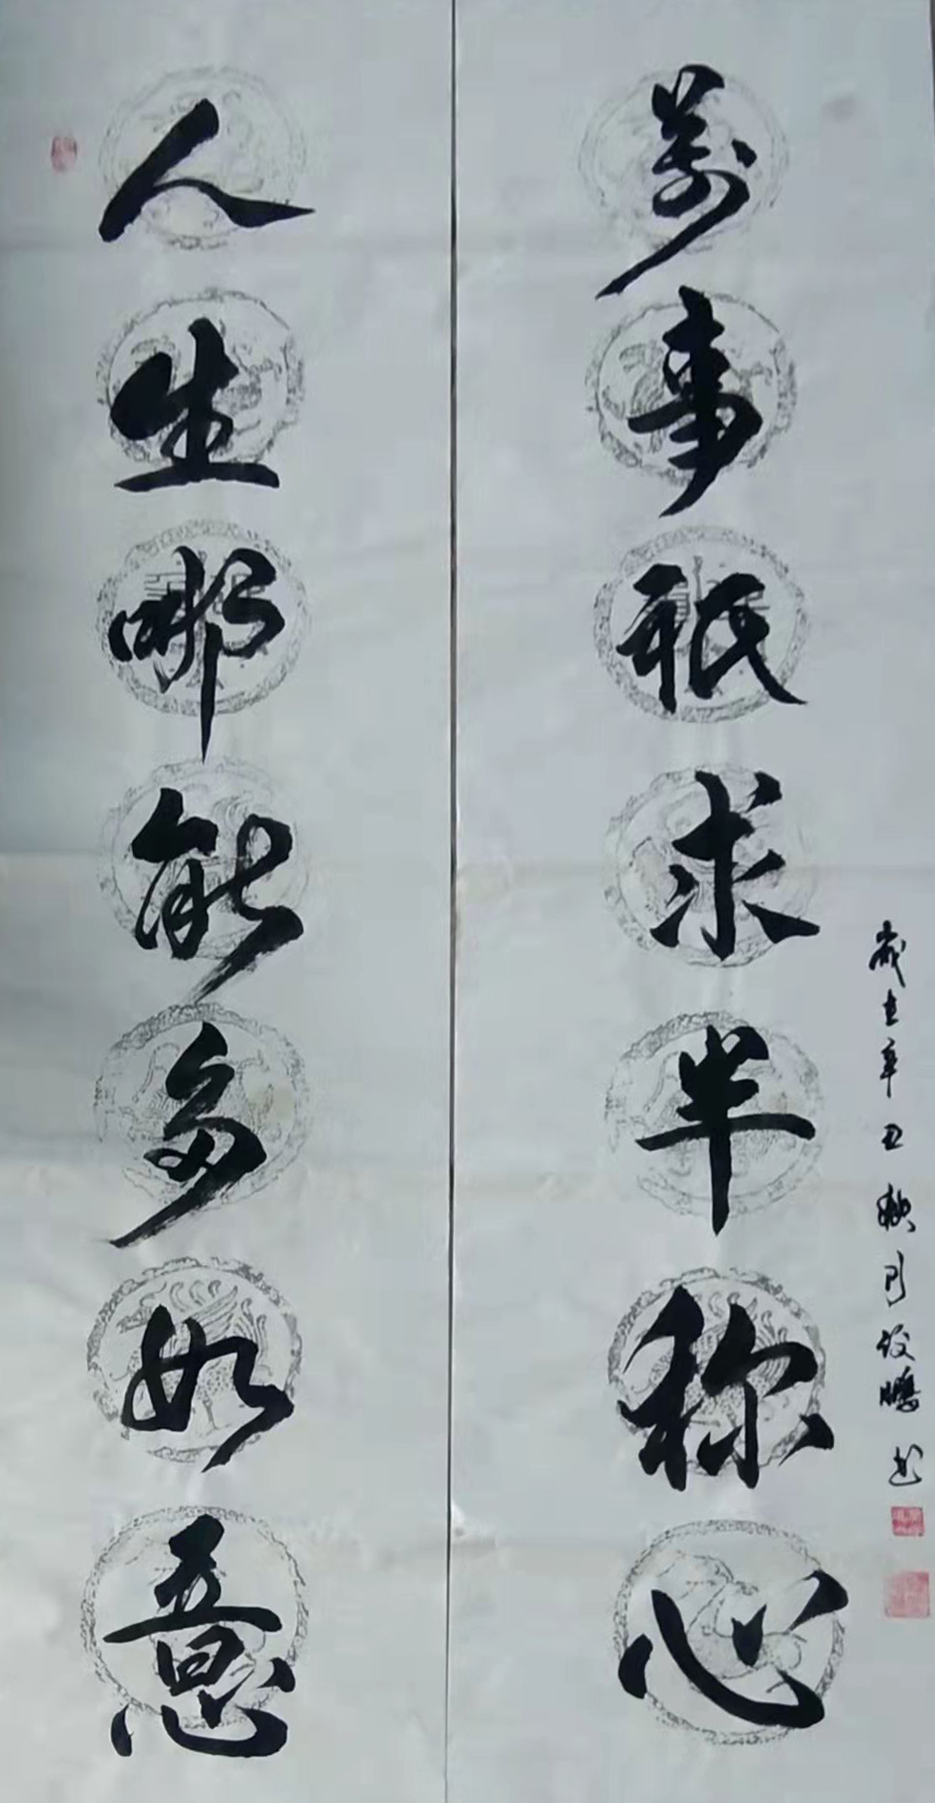 人生哪能多如意
萬事祇求半称心
歲在辛丑秋月俊鵬书